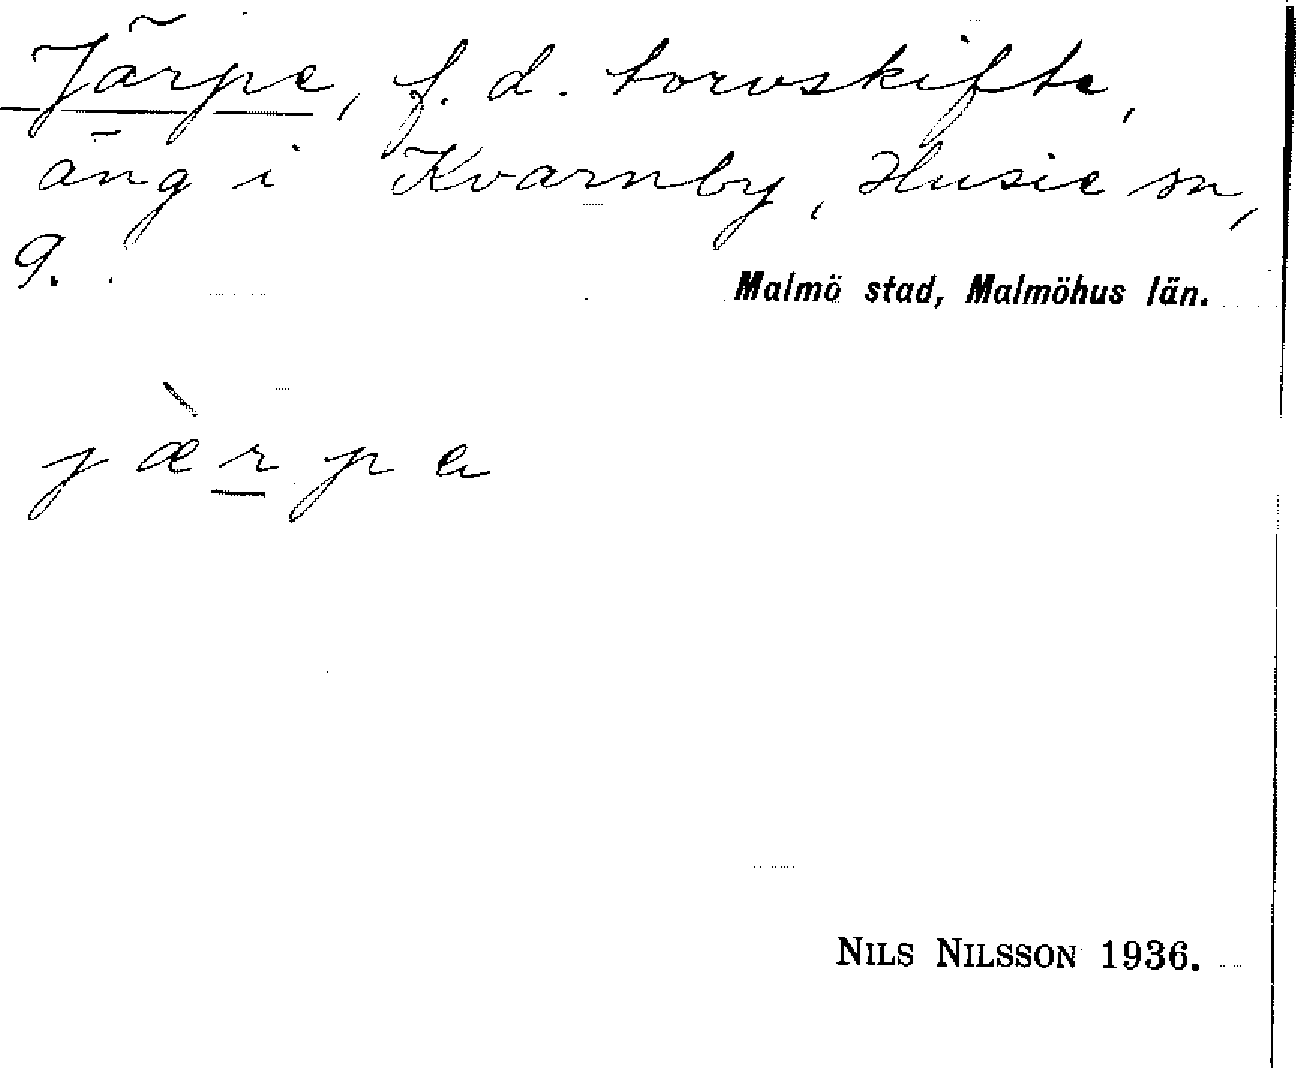 Järpe, f. d. torvskifte,
äng i Kvarnby, Husie sn,
9.
Malmö stad, Malmöhus län.
jæ̀rpa
NILS NILSSON 1936.